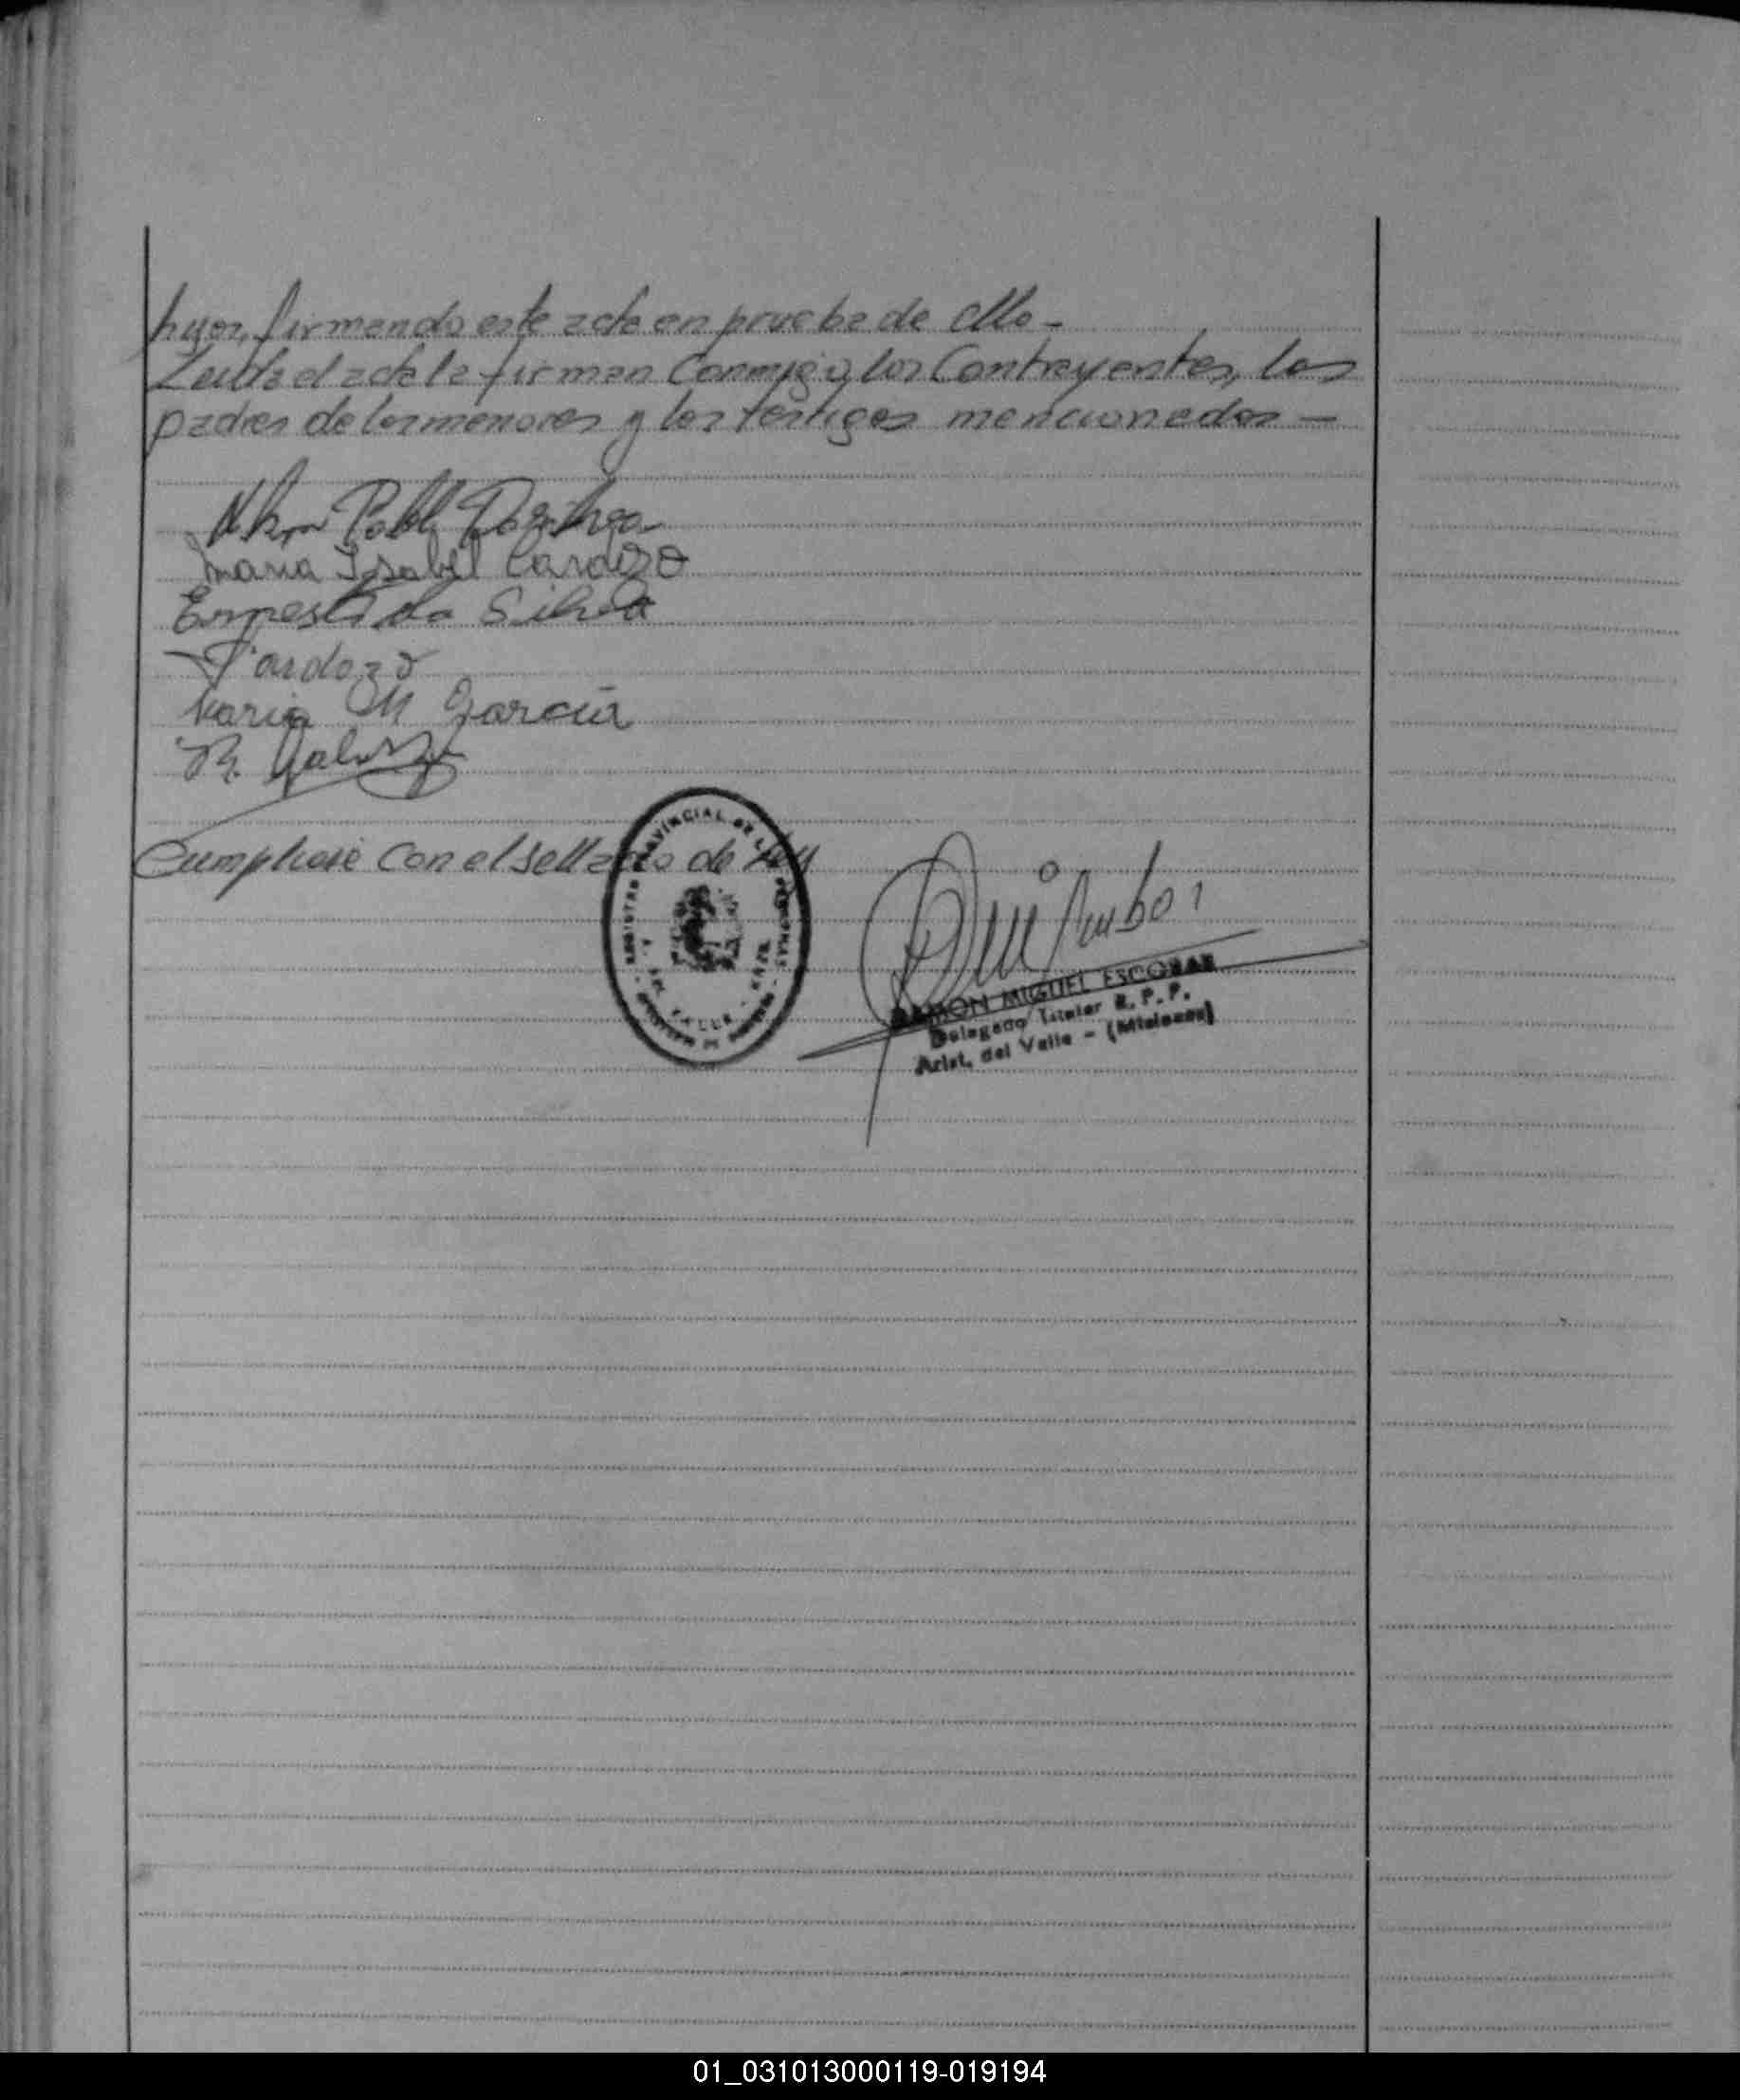 hijos, firmando este acta en prueba de ello -
Leida el acta la firman Conmigo, los Contrayentes, los
padres de los menores y los testigos mencionados -
Pabl
Maria Isabel Cardozo
Ernesto da Silva
Cardozo
Maria M Garcia
R.
Cumpliose con el sellado de Ley
REGISTRO PROVINCIAL DE LAS PERSONAS
VALLE
RAMON MIGUEL ESCOBAR
Delegado Titular R. P. P.
Arist. del Valle - (Misiones)
01_031013000119-019194